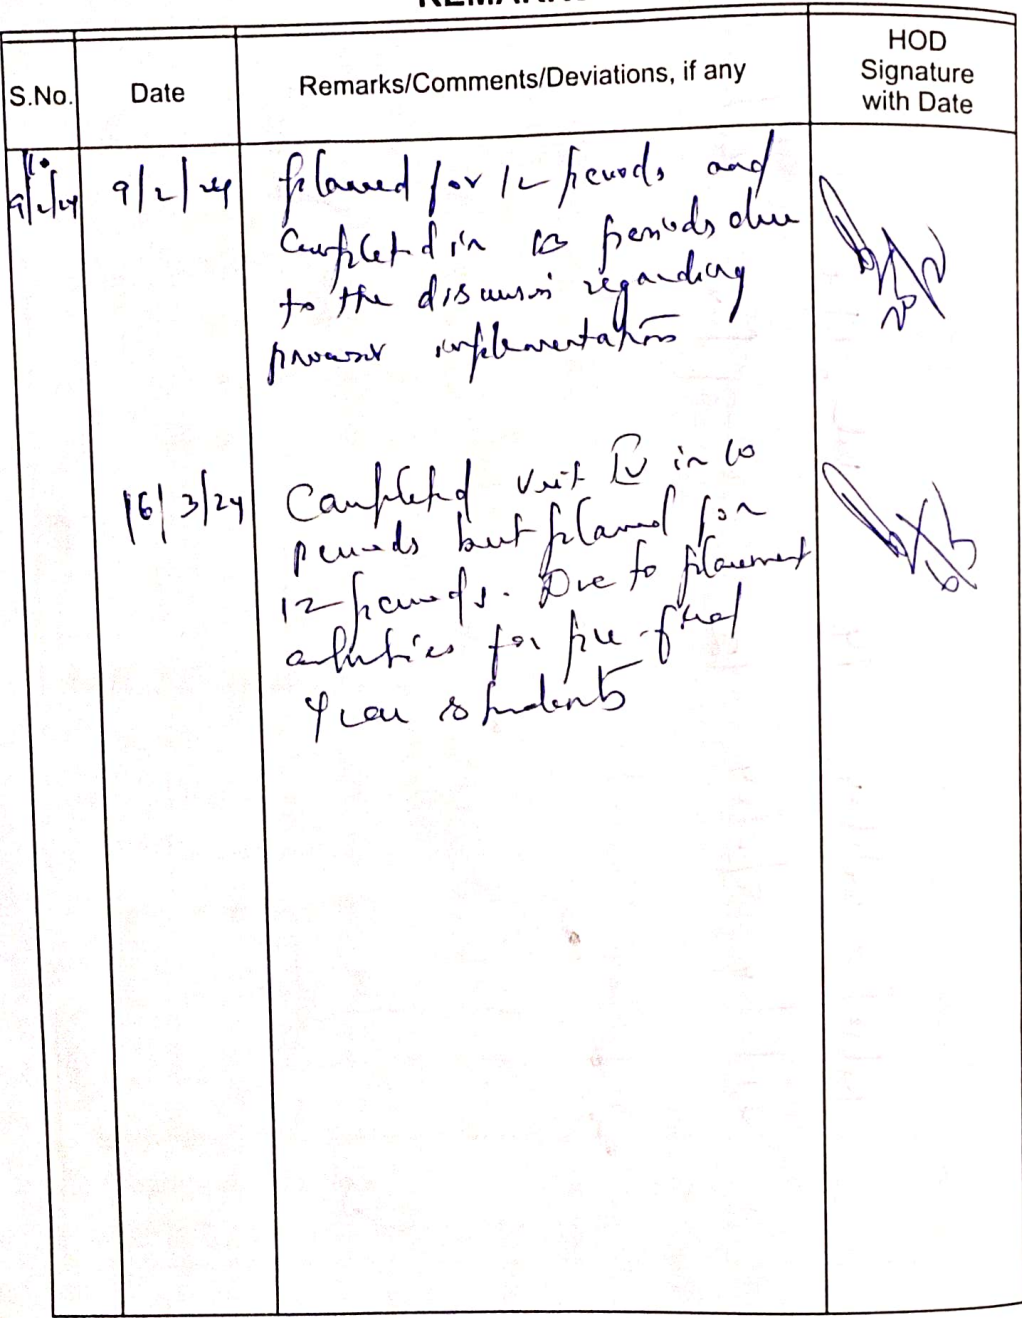 S.No.
Date
Remarks/Comments/Deviations, if any
HOD
Signature
with Date
1.
9/2/24
9/2/24
planned for 12 periods and
completed in periods due
to the discussion regarding
implementation
16/3/24
Completed Unit IV in 10
periods but planned for
12 periods. Due to placement
activities for pre-final
year students